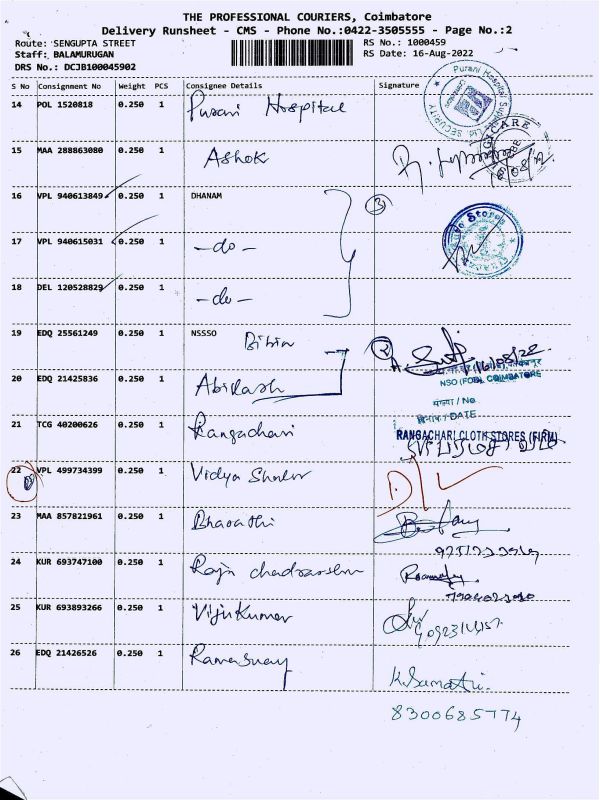 THE PROFESSIONAL COURIERS, Coimbatore
Delivery Runsheet - CMS - Phone No.:0422-3505555 - Page No.:2
Route: SENGUPTA STREET RS No.: 1000459
Staff: BALAMURUGAN RS Date: 16-Aug-2022
DRS No.: DCJB100045902
S No Consignment No Weight PCS Consignee Details Signature
14 POL 1520818 0.250 1 Purani Hospital
Purani Hospital
SECURITY
15 MAA 288863080 0.250 1 Ashok
CARE
16 VPL 940613849 0.250 1 DHANAM 3
Stores
17 VPL 940615031 0.250 1 -do-
18 DEL 120528829 0.250 1 -do-
19 EDQ 25561249 0.250 1 NSSSO Bibin
16/08/22
20 EDQ 21425836 0.250 1 Abilash
NSO (FOD), COIMBATORE
संख्या / No
दिनांक / DATE
21 TCG 40200626 0.250 1 Rangachari RANGACHARI CLOTH STORES (FIRM)
22 VPL 499734399 0.250 1 Vidya D/L
23 MAA 857821961 0.250 1 Bharathi
24 KUR 693747100 0.250 1 Raja
25 KUR 693893266 0.250 1 VijuKumar
26 EDQ 21426526 0.250 1 Ramasway
8300685774